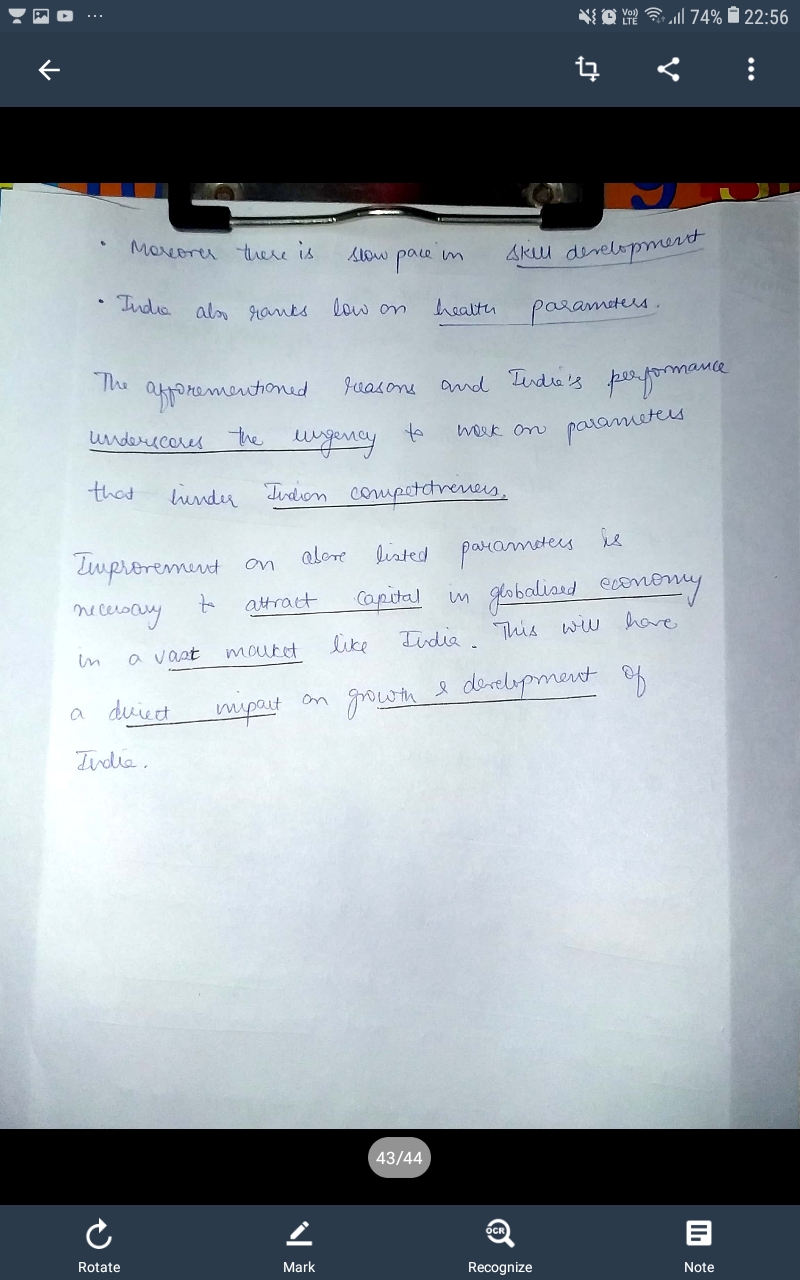 74% 22:56
• Moreover there is slow pace in skill development
• India also ranks low on health parameters.
The afforementioned reasons and India's performance
underscores the urgency to work on parameters
that hinder Indian competitiveness.
Improvement on above listed parameters is
necessary to attract capital in globalised economy
in a vast market like India. This will have
a direct impact on growth & development of
India.
43/44
OCR
Rotate Mark Recognize Note